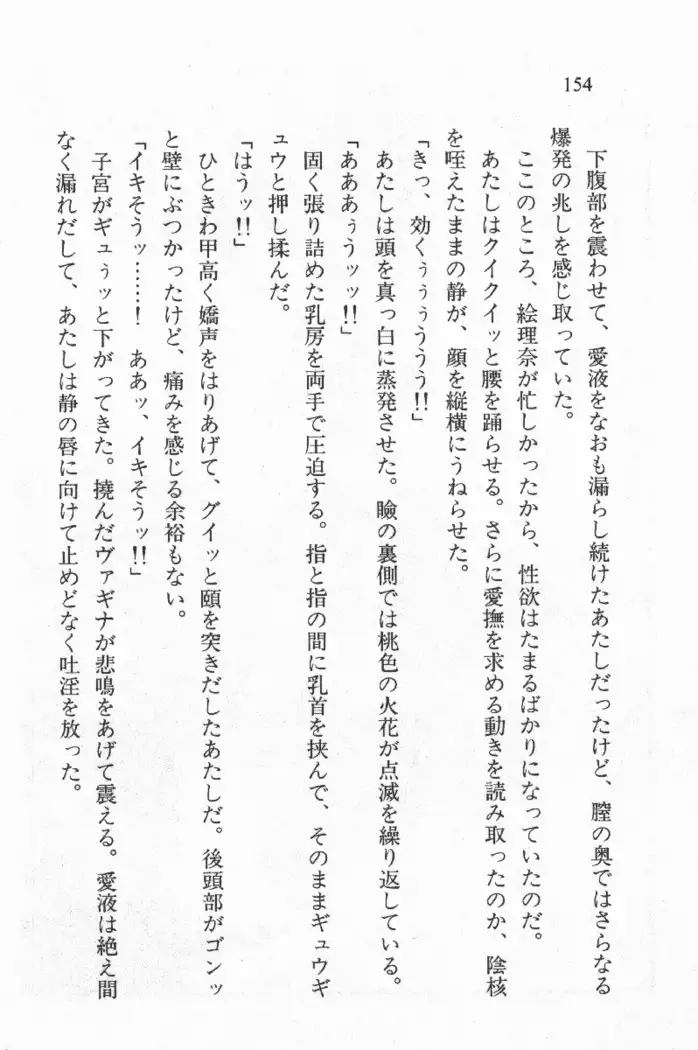 154
下腹部を震わせて、愛液をなおも漏らし続けたあたしだったけど、膣の奥ではさらなる
爆発の兆しを感じ取っていた。
ここのところ、絵理奈が忙しかったから、性欲はたまるばかりになっていたのだ。
あたしはクイクイッと腰を踊らせる。さらに愛撫を求める動きを読み取ったのか、陰核
を咥えたままの静が、顔を縦横にうねらせた。
「きっ、効くぅぅぅううう!!」
あたしは頭を真っ白に蒸発させた。瞼の裏側では桃色の火花が点滅を繰り返している。
「あああぅうッッ!!」
固く張り詰めた乳房を両手で圧迫する。指と指の間に乳首を挟んで、そのままギュウギ
ュウと押し揉んだ。
「はうッ!!」
ひときわ甲高く嬌声をはりあげて、グイッと頤を突きだしたあたしだ。後頭部がゴンッ
と壁にぶつかったけど、痛みを感じる余裕もない。
「イキそうッ……！　ああッ、イキそうッ!!」
子宮がギュゥッと下がってきた。撓んだヴァギナが悲鳴をあげて震える。愛液は絶え間
なく漏れだして、あたしは静の唇に向けて止めどなく吐淫を放った。